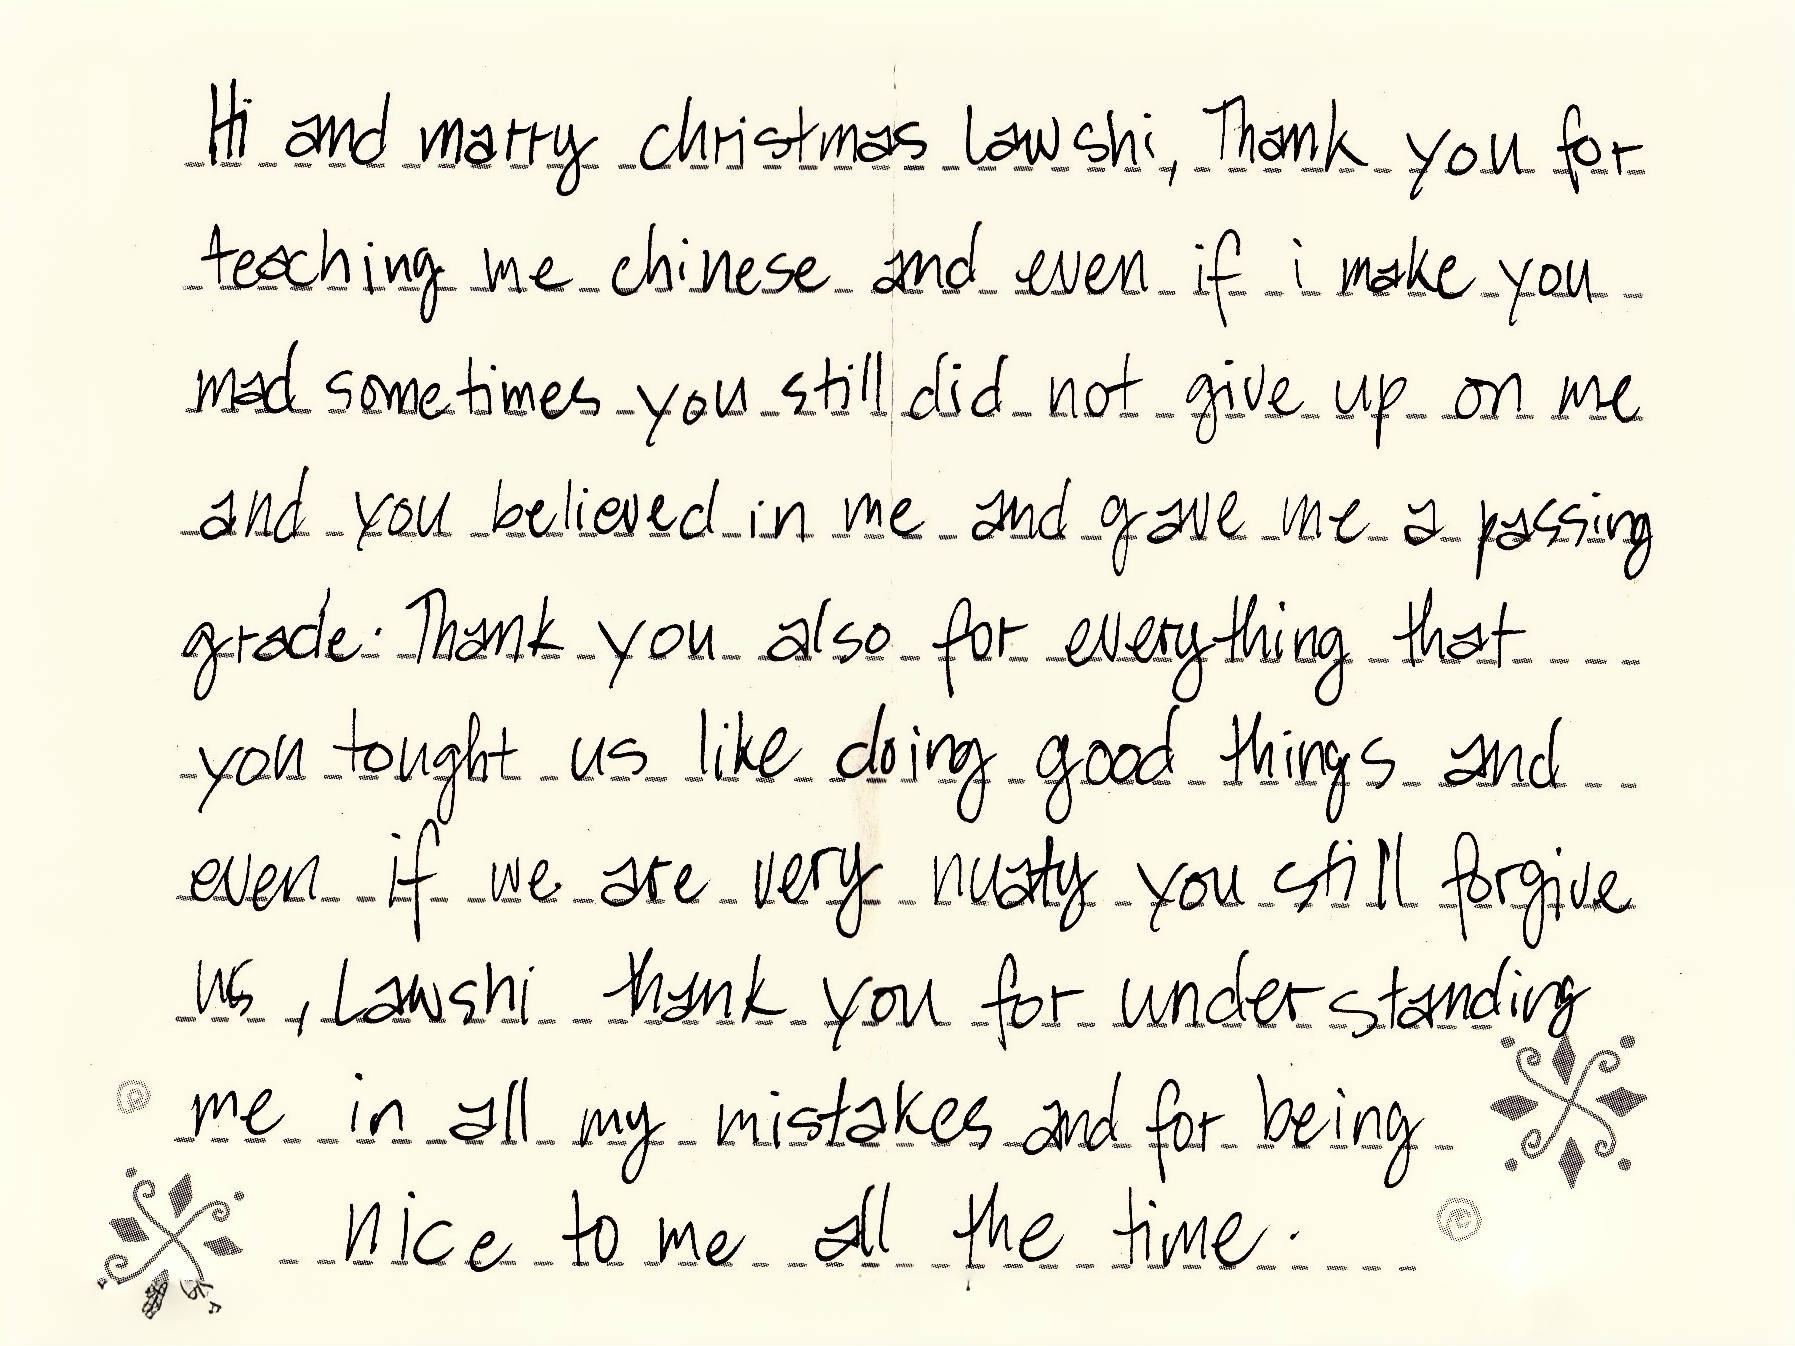 Hi and marry christmas lawshi, Thank you for
teaching me chinese and even if i make you
mad sometimes you still did not give up on me
and you believed in me and gave me a passing
grade. Thank you also for everything that
you tought us like doing good things and
even if we are very nuaty you still forgive
us, Lawshi thank you for understanding
me in all my mistakes and for being
nice to me all the time.